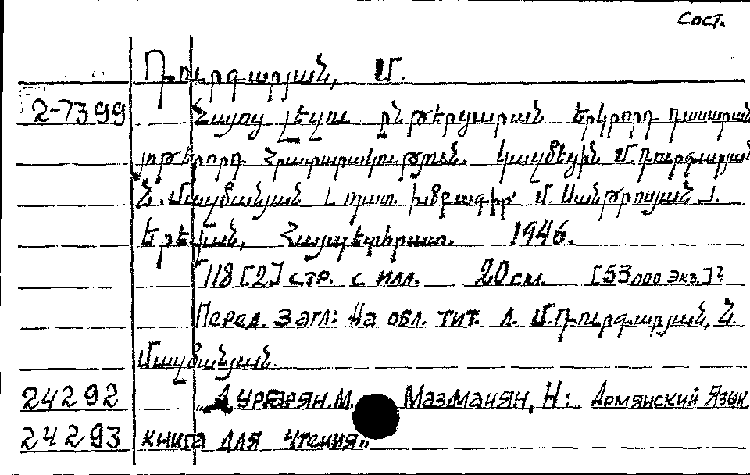 Сост.
Դուրգարյան, Մ.
2-7399 Հայոց լեզու ընթերցարան երկրորդ դասարան
չորրորդ հրատարակություն. կազմեցին Մ. Դուրգարյան
Ն. Մազմանյան [պատ. խմբագիր Մ. Սանթրոսյան].
Երևան, Հայպետհրատ. 1946.
118 [2] стр. с илл. 20 см. [53000 экз.]
Перед. загл: На обл. тит. л. Մ. Դուրգարյան, Ն
Մազմանյան.
24292 Дургарян. М. Мазманян, Н: Армянский Язык
24293 книга для чтения"